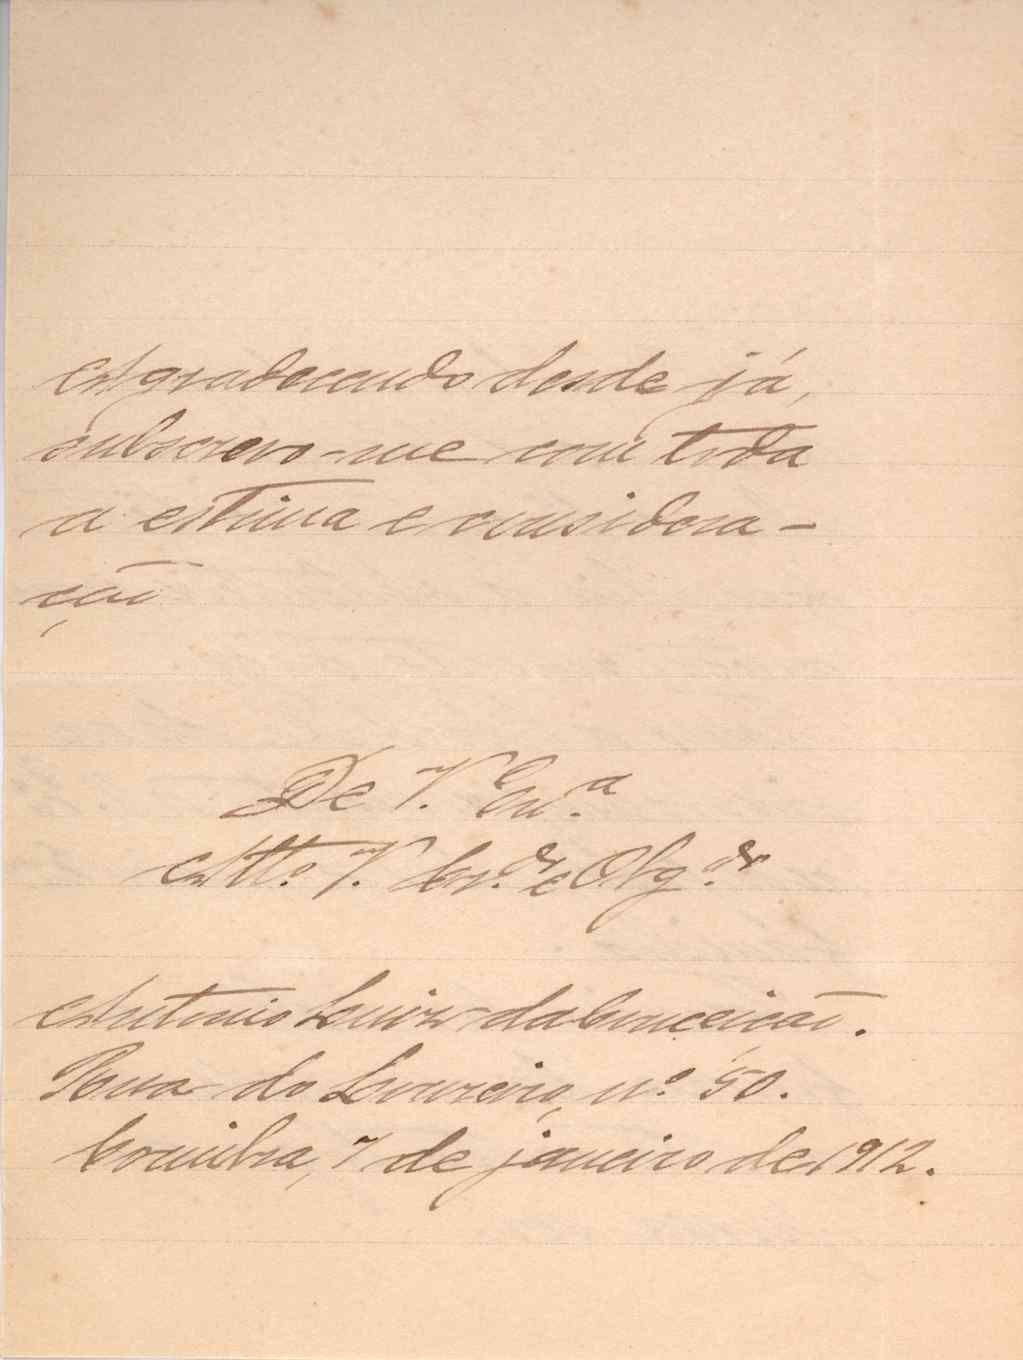 Agradecendo desde já,
subscrevo-me com toda
a estima e considera-
ção
De V. Ex.ª
Att.º V. Cr.dr e Obg.dr
Antonio Luiz da Conceição.
Rua do Loureiro, nº 50.
Coimbra, 7 de janeiro de 1912.